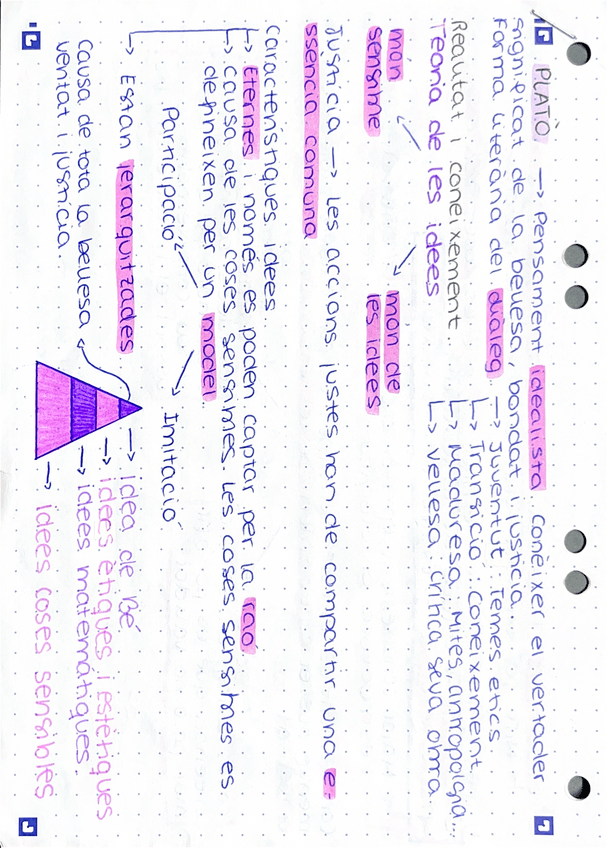 PLATÓ → Pensament idealista. Conèixer el vertader
significat de la bellesa, bondat i justícia.
Forma literària del diàleg → Joventut: Temes ètics
↳ Transició: Coneixement
↳ Maduresa: Mites, antropolgia...
↳ Vellesa: Crítica seva obra.
Realitat i coneixement.
Teoria de les idees
món sensible
món de les idees
Justícia → Les accions justes han de compartir una e-
ssencia comuna
Característiques idees
↳ Eternes i només es poden captar per la raó.
↳ causa de les coses sensibles. Les coses sensibles es
defineixen per un model.
Participació
Imitació
→ Estan jerarquitzades
Causa de tota la bellesa
veritat i justícia.
→ idea de Bé
→ idees ètiques i estètiques
→ idees matemàtiques.
→ idees coses sensibles